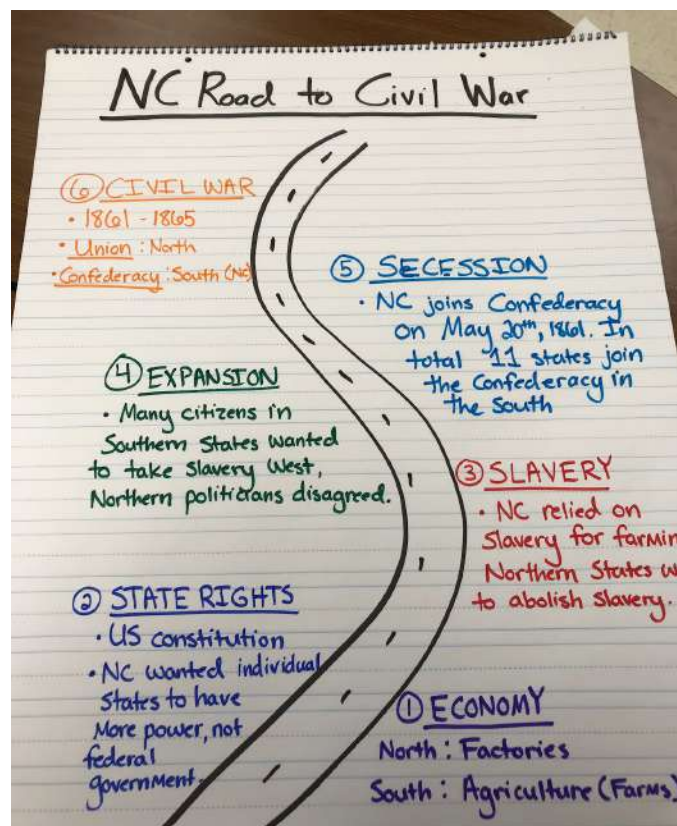 NC Road to Civil War
⑥ CIVIL WAR
• 1861 - 1865
• Union : North
• Confederacy : South (NC)
⑤ SECESSION
• NC joins Confederacy
on May 20th, 1861. In
total 11 states join
the Confederacy in
the South
④ EXPANSION
• Many citizens in
Southern States wanted
to take slavery West,
Northern politicians disagreed.
③ SLAVERY
• NC relied on
Slavery for
Northern States
to abolish slavery.
② STATE RIGHTS
• US constitution
• NC wanted individual
States to have
More power, not
federal
government.
① ECONOMY
North : Factories
South : Agriculture (Farms)